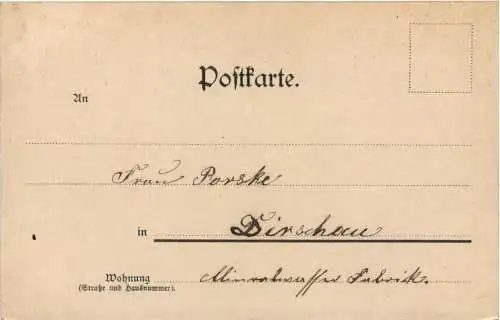 Postkarte.
An
Frau Porske
in Dirschau
Wohnung Mineralwasser Fabrik.
(Straße und Hausnummer).